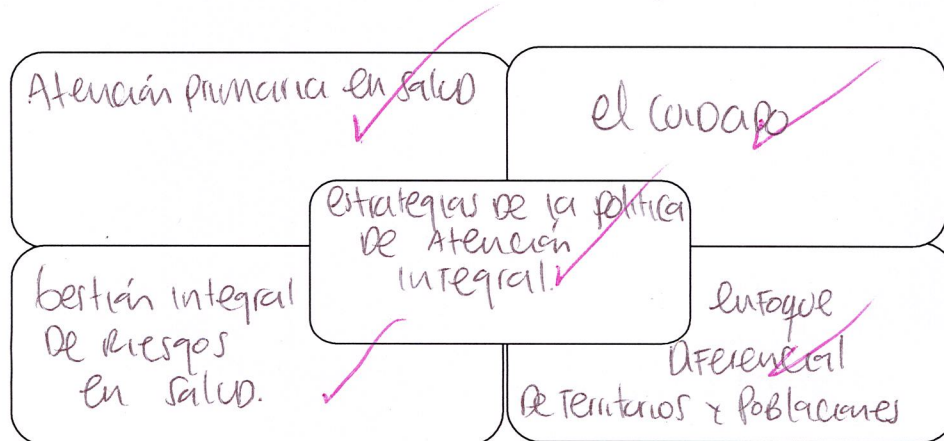 Atención primaria en salud
el cuidado
estrategias de la política
de Atención
integral.
Gestión integral
De Riesgos
en salud.
enfoque
Diferencial
De Territorios y Poblaciones